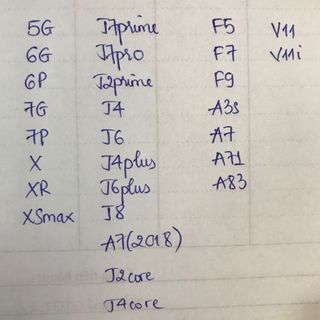 5G J7prime F5 V11
6G J7pro F7 V11i
6P J2prime F9
7G J4 A3s
7P J6 A7
X J4plus A71
XR J6plus A83
XSmax J8
A7(2018)
J2core
J4core